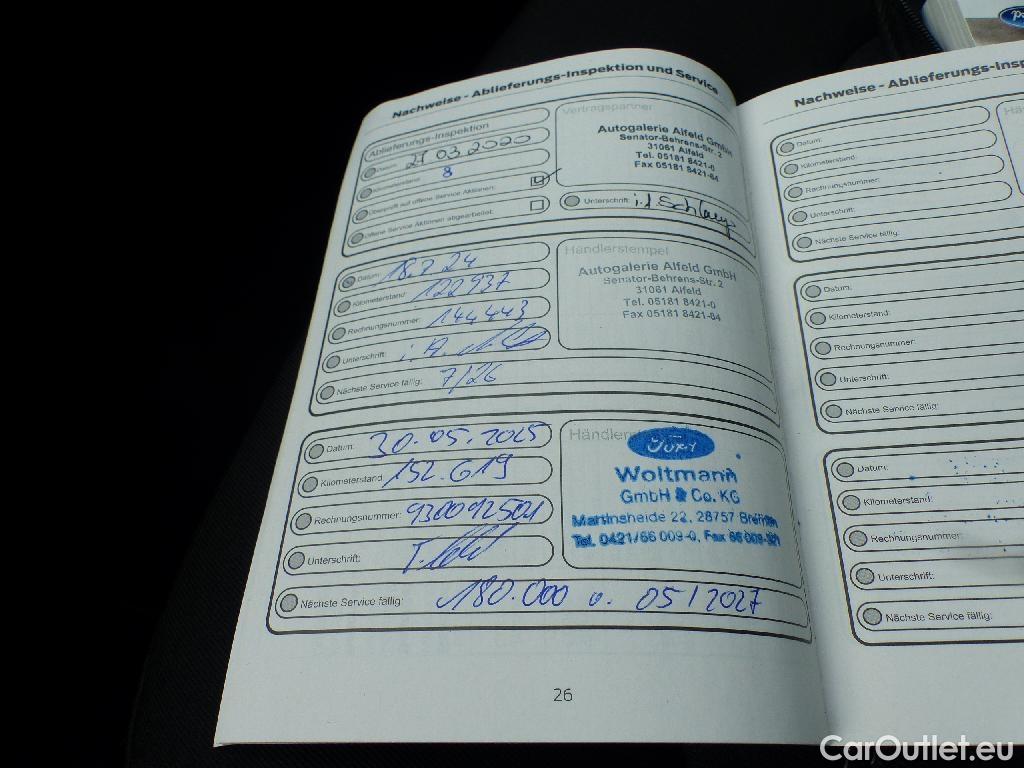 Nachweise - Ablieferungs-Inspektion und Service
Ablieferungs-Inspektion
Datum: 27 03 2020
Kilometerstand: 8
Überprüft auf offene Service Aktionen:
Offene Service Aktionen abgearbeitet:
Vertragspartner
Autogalerie Alfeld GmbH
Senator-Behrens-Str. 2
31061 Alfeld
Tel. 05181 8421-0
Fax 05181 8421-84
Unterschrift:
Datum: 18.7.24
Kilometerstand: 122937
Rechnungsnummer: 144443
Unterschrift: i.A.
Nächste Service fällig: 7/26
Händlerstempel
Autogalerie Alfeld GmbH
Senator-Behrens-Str. 2
31061 Alfeld
Tel. 05181 8421-0
Fax 05181 8421-84
Datum: 30.05.2025
Kilometerstand 152.619
Rechnungsnummer: 9300092501
Unterschrift:
Nächste Service fällig: 180.000 o. 05/2027
Ford
Woltmann
GmbH & Co. KG
Martinsheide 22, 28757 Bremen
Tel. 0421/66 009-0, Fax 66 009-321
26
Nachweise - Ablieferungs-Insp
Datum:
Kilometerstand:
Rechnungsnummer:
Unterschrift:
Nächste Service fällig:
Datum:
Kilometerstand:
Rechnungsnummer:
Unterschrift:
Nächste Service fällig:
Datum:
Kilometerstand:
Rechnungsnummer:
Unterschrift:
Nächste Service fällig:
CarOutlet.eu